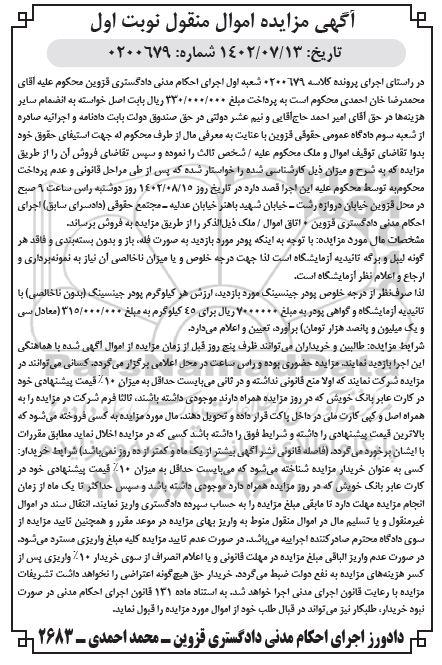 آگهی مزایده اموال منقول نوبت اول
تاریخ: ۱۴۰۲/۰۷/۱۳ شماره: ۰۲۰۰۶۷۹
در راستای اجرای پرونده کلاسه ۰۲۰۰۶۷۹ شعبه اول اجرای احکام مدنی دادگستری قزوین محکوم علیه آقای
محمدرضا خان احمدی محکوم است به پرداخت مبلغ ۳۳۰/۰۰۰/۰۰۰ ریال بابت اصل خواسته به انضمام سایر
هزینه‌ها در حق آقای امیر احمد حاج‌آقایی و نیم عشر دولتی در حق صندوق دولت بابت دادنامه و اجرائیه صادره
از شعبه سوم دادگاه عمومی حقوقی قزوین با عنایت به معرفی مال از طرف محکوم له جهت استیفای حقوق خود
بدوا تقاضای توقیف اموال و ملک محکوم علیه / شخص ثالث را نموده و سپس تقاضای فروش آن را از طریق
مزایده که به شرح و میزان ذیل کارشناسی شده را خواستار شده که پس از طی مراحل قانونی و عدم پرداخت
محکوم‌به توسط محکوم علیه این اجرا قصد دارد در تاریخ روز ۱۴۰۲/۰۸/۱۵ روز دوشنبه راس ساعت ۹ صبح
در محل قزوین خیابان دروازه رشت ـ خیابان شهید باهنر خیابان عدلیه ـ مجتمع حقوقی (دادسرای سابق) اجرای
احکام مدنی دادگستری قزوین ۰ اتاق اموال / ملک ذیل‌الذکر را از طریق مزایده به فروش برساند.
مشخصات مال مورد مزایده: با توجه به اینکه پودر مورد بازدید به صورت فله، باز و بدون بسته‌بندی و فاقد هر
گونه لیبل و برگه تائیدیه آزمایشگاه است لذا جهت درجه خلوص و یا میزان ناخالصی آن نیاز به نمونه‌برداری و
ارجاع و اعلام نظر آزمایشگاه است.
لذا صرف‌نظر از درجه خلوص پودر جینسینگ مورد بازدید، ارزش هر کیلوگرم پودر جینسینگ (بدون ناخالصی) با
تائیدیه آزمایشگاه و گواهی پودر به مبلغ ۷۰۰۰۰۰۰ ریال برای ۴۵ کیلوگرم به مبلغ ۳۱۵/۰۰۰/۰۰۰ (معادل سی
و یک میلیون و پانصد هزار تومان) برآورد، تعیین و اعلام می‌دارد.
شرایط مزایده: طالبین و خریداران می‌توانند ظرف پنج روز قبل از زمان مزایده از اموال آگهی شده با هماهنگی
این اجرا بازدید نمایند. مزایده حضوری بوده و راس ساعت در محل اعلامی برگزار می‌گردد. کسانی می‌توانند در
مزایده شرکت نمایند که اولا منع قانونی نداشته و در ثانی می‌بایست حداقل به میزان ۱۰٪ قیمت پیشنهادی خود
در کارت عابر بانک خویش که در روز مزایده همراه دارند موجودی داشته باشند، ثالثا فرم شرکت در مزایده را به
همراه اصل و کپی کارت ملی در داخل پاکت قرار داده و تحویل دهند. مال مورد مزایده به کسی فروخته می‌شود که
بالاترین قیمت پیشنهادی را داشته و شرایط فوق را داشته باشد کسی که در مزایده اخلال نماید مطابق مقررات
با ایشان برخورد می‌گردد. (فاصله قانونی نشر آگهی بیشتر از یک ماه و کمتر از ده روز نمی‌باشد) شرایط خریدار:
کسی به عنوان خریدار مزایده شناخته می‌شود که می‌بایست حداقل به میزان ۱۰٪ قیمت پیشنهادی خود در
کارت عابر بانک خویش که در روز مزایده همراه دارد موجودی داشته باشد و سپس حداکثر تا یک ماه از زمان
انجام مزایده مهلت دارد تا مابقی مبلغ مزایده را به حساب سپرده دادگستری واریز نمایند. انتقال سند در اموال
غیرمنقول و یا تسلیم مال در اموال منقول منوط به واریز بهای مزایده در موعد مقرر و همچنین تایید مزایده از
سوی دادگاه محترم صادرکننده اجراییه می‌باشد. در صورت عدم تایید مزایده کلیه مبلغ واریزی مسترد می‌شود.
در صورت عدم واریز الباقی مبلغ مزایده در مهلت قانونی و یا اعلام انصراف از سوی خریدار ۱۰٪ واریزی پس از
کسر هزینه‌های مزایده به نفع دولت ضبط می‌گردد. خریدار حق هیچ‌گونه اعتراضی را نخواهد داشت تشریفات
مزایده با رعایت قانون اجرای مدنی اجرا خواهد شد. به استناد ماده ۱۳۱ قانون اجرای احکام مدنی در صورت
نبود خریدار، طلبکار نیز می‌تواند در قبال طلب خود از اموال مورد مزایده را قبول نماید.
دادورز اجرای احکام مدنی دادگستری قزوین ـ محمد احمدی ـ ۲۶۸۳